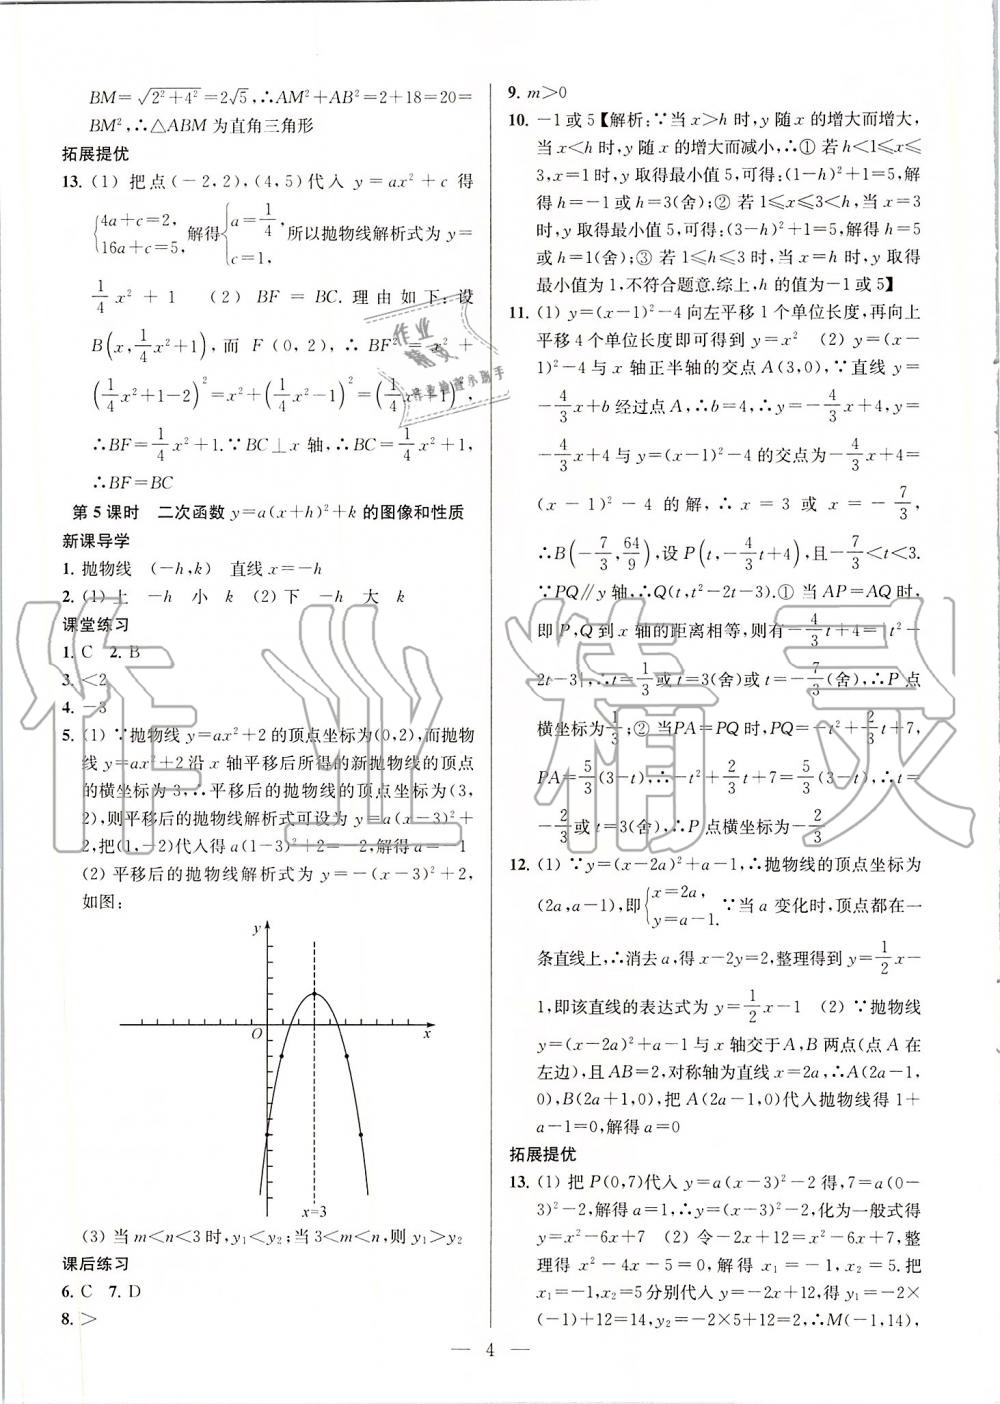 BM=√(2²+4²)=2√5,∴AM²+AB²=2+18=20=
BM²,∴△ABM 为直角三角形
拓展提优
13. (1) 把点(-2,2),(4,5)代入 y=ax²+c 得
{4a+c=2, 16a+c=5, 解得{a=1/4, c=1, 所以抛物线解析式为 y=
1/4 x²+1 (2) BF=BC. 理由如下:设
B(x,1/4 x²+1),而 F(0,2),∴BF²=x²+
(1/4 x²+1-2)²=x²+(1/4 x²-1)²=(1/4 x²+1)²,
∴BF=1/4 x²+1.∵BC⊥x 轴,∴BC=1/4 x²+1,
∴BF=BC
第 5 课时 二次函数 y=a(x+h)²+k 的图像和性质
新课导学
1. 抛物线 (-h,k) 直线 x=-h
2. (1)上 -h 小 k (2)下 -h 大 k
课堂练习
1. C 2. B
3. <2
4. -3
5. (1) ∵抛物线 y=ax²+2 的顶点坐标为(0,2),而抛物
线 y=ax²+2 沿 x 轴平移后所得的新抛物线的顶点
的横坐标为 3,∴平移后的抛物线的顶点坐标为(3,
2),则平移后的抛物线解析式可设为 y=a(x-3)²+
2,把(1,-2)代入得 a(1-3)²+2=-2,解得 a=-1
(2) 平移后的抛物线解析式为 y=-(x-3)²+2,
如图:
y
O
x
x=3
(3) 当 m<n<3 时,y₁<y₂;当 3<m<n,则 y₁>y₂
课后练习
6. C 7. D
8. >
9. m>0
10. -1 或 5【解析:∵当 x>h 时,y 随 x 的增大而增大,
当 x<h 时,y 随 x 的增大而减小,∴① 若 h<1≤x≤
3,x=1 时,y 取得最小值 5,可得:(1-h)²+1=5,解
得 h=-1 或 h=3(舍);② 若 1≤x≤3<h,当 x=3
时,y 取得最小值 5,可得:(3-h)²+1=5,解得 h=5
或 h=1(舍);③ 若 1≤h≤3 时,当 x=h 时,y 取得
最小值为 1,不符合题意.综上,h 的值为-1 或 5】
11. (1) y=(x-1)²-4 向左平移 1 个单位长度,再向上
平移 4 个单位长度即可得到 y=x² (2) y=(x-
1)²-4 与 x 轴正半轴的交点 A(3,0),∵直线 y=
-4/3 x+b 经过点 A,∴b=4,∴y=-4/3 x+4,y=
-4/3 x+4 与 y=(x-1)²-4 的交点为-4/3 x+4=
(x-1)²-4 的解,∴x=3 或 x=-7/3,
∴B(-7/3,64/9),设 P(t,-4/3 t+4),且-7/3<t<3.
∵PQ∥y 轴,∴Q(t,t²-2t-3).① 当 AP=AQ 时,
即 P,Q 到 x 轴的距离相等,则有-4/3 t+4=|t²-
2t-3|,∴t=1/3 或 t=3(舍)或 t=-7/3(舍),∴P 点
横坐标为1/3;② 当 PA=PQ 时,PQ=-t²+2/3 t+7,
PA=5/3(3-t),∴-t²+2/3 t+7=5/3(3-t),∴t=
-2/3或 t=3(舍),∴P 点横坐标为-2/3
12. (1) ∵y=(x-2a)²+a-1,∴抛物线的顶点坐标为
(2a,a-1),即{x=2a, y=a-1. ∵当 a 变化时,顶点都在一
条直线上,∴消去 a,得 x-2y=2,整理得到 y=1/2 x-
1,即该直线的表达式为 y=1/2 x-1 (2) ∵抛物线
y=(x-2a)²+a-1 与 x 轴交于 A,B 两点(点 A 在
左边),且 AB=2,对称轴为直线 x=2a,∴A(2a-1,
0),B(2a+1,0),把 A(2a-1,0)代入抛物线得 1+
a-1=0,解得 a=0
拓展提优
13. (1) 把 P(0,7)代入 y=a(x-3)²-2 得,7=a(0-
3)²-2,解得 a=1,∴y=(x-3)²-2,化为一般式得
y=x²-6x+7 (2) 令-2x+12=x²-6x+7,整
理得 x²-4x-5=0,解得 x₁=-1,x₂=5.把
x₁=-1,x₂=5 分别代入 y=-2x+12,得 y₁=-2×
(-1)+12=14,y₂=-2×5+12=2,∴M(-1,14),
— 4 —
作业精灵
作业
精灵
作业检查小助手